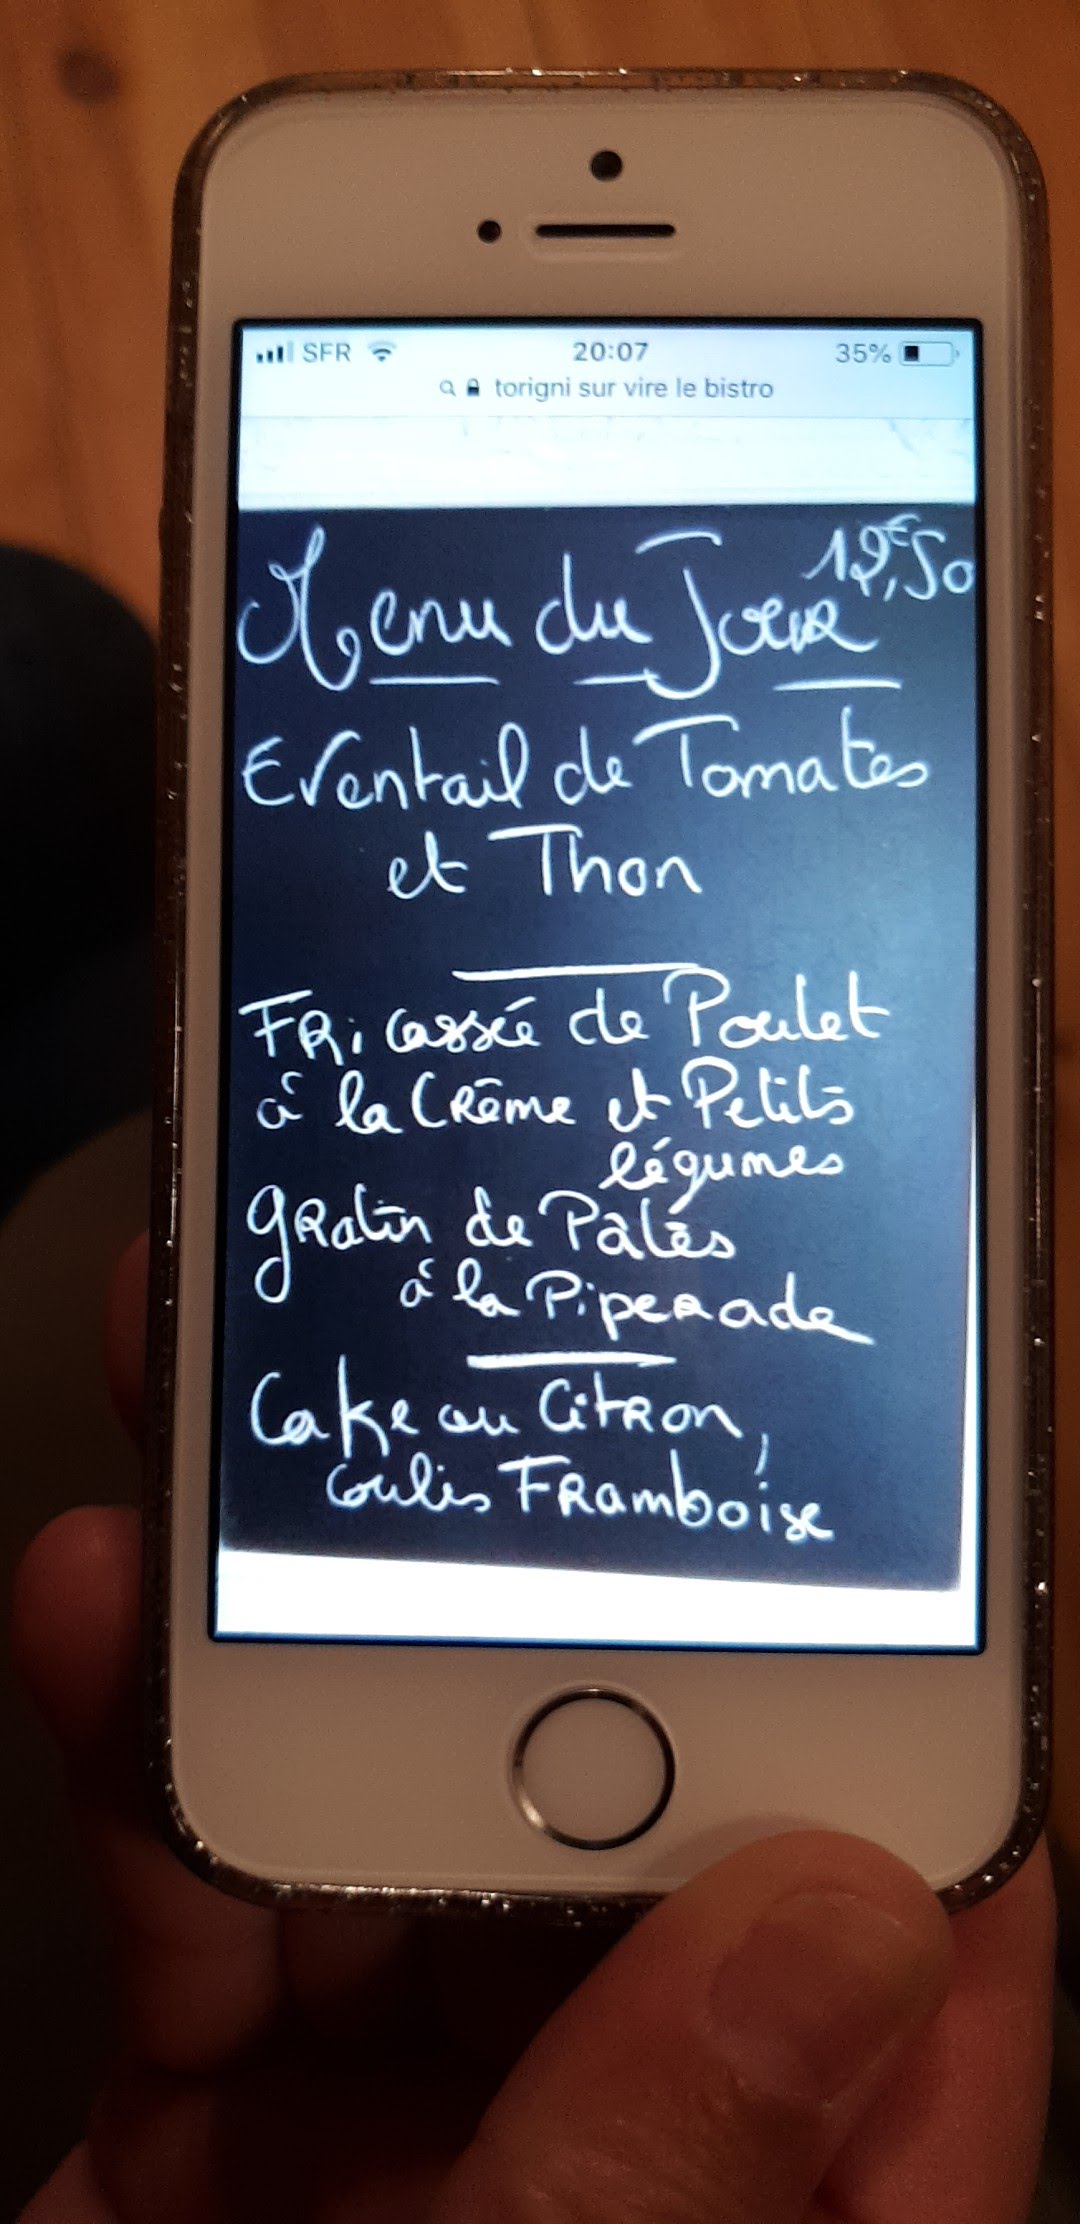 SFR 20:07 35%
torigni sur vire le bistro
Menu du Jour 12,€50
Eventail de Tomates
et Thon
Fricassée de Poulet
à la Crème et Petits
légumes
gratin de Pâtes
à la Piperade
Cake au Citron,
coulis Framboise